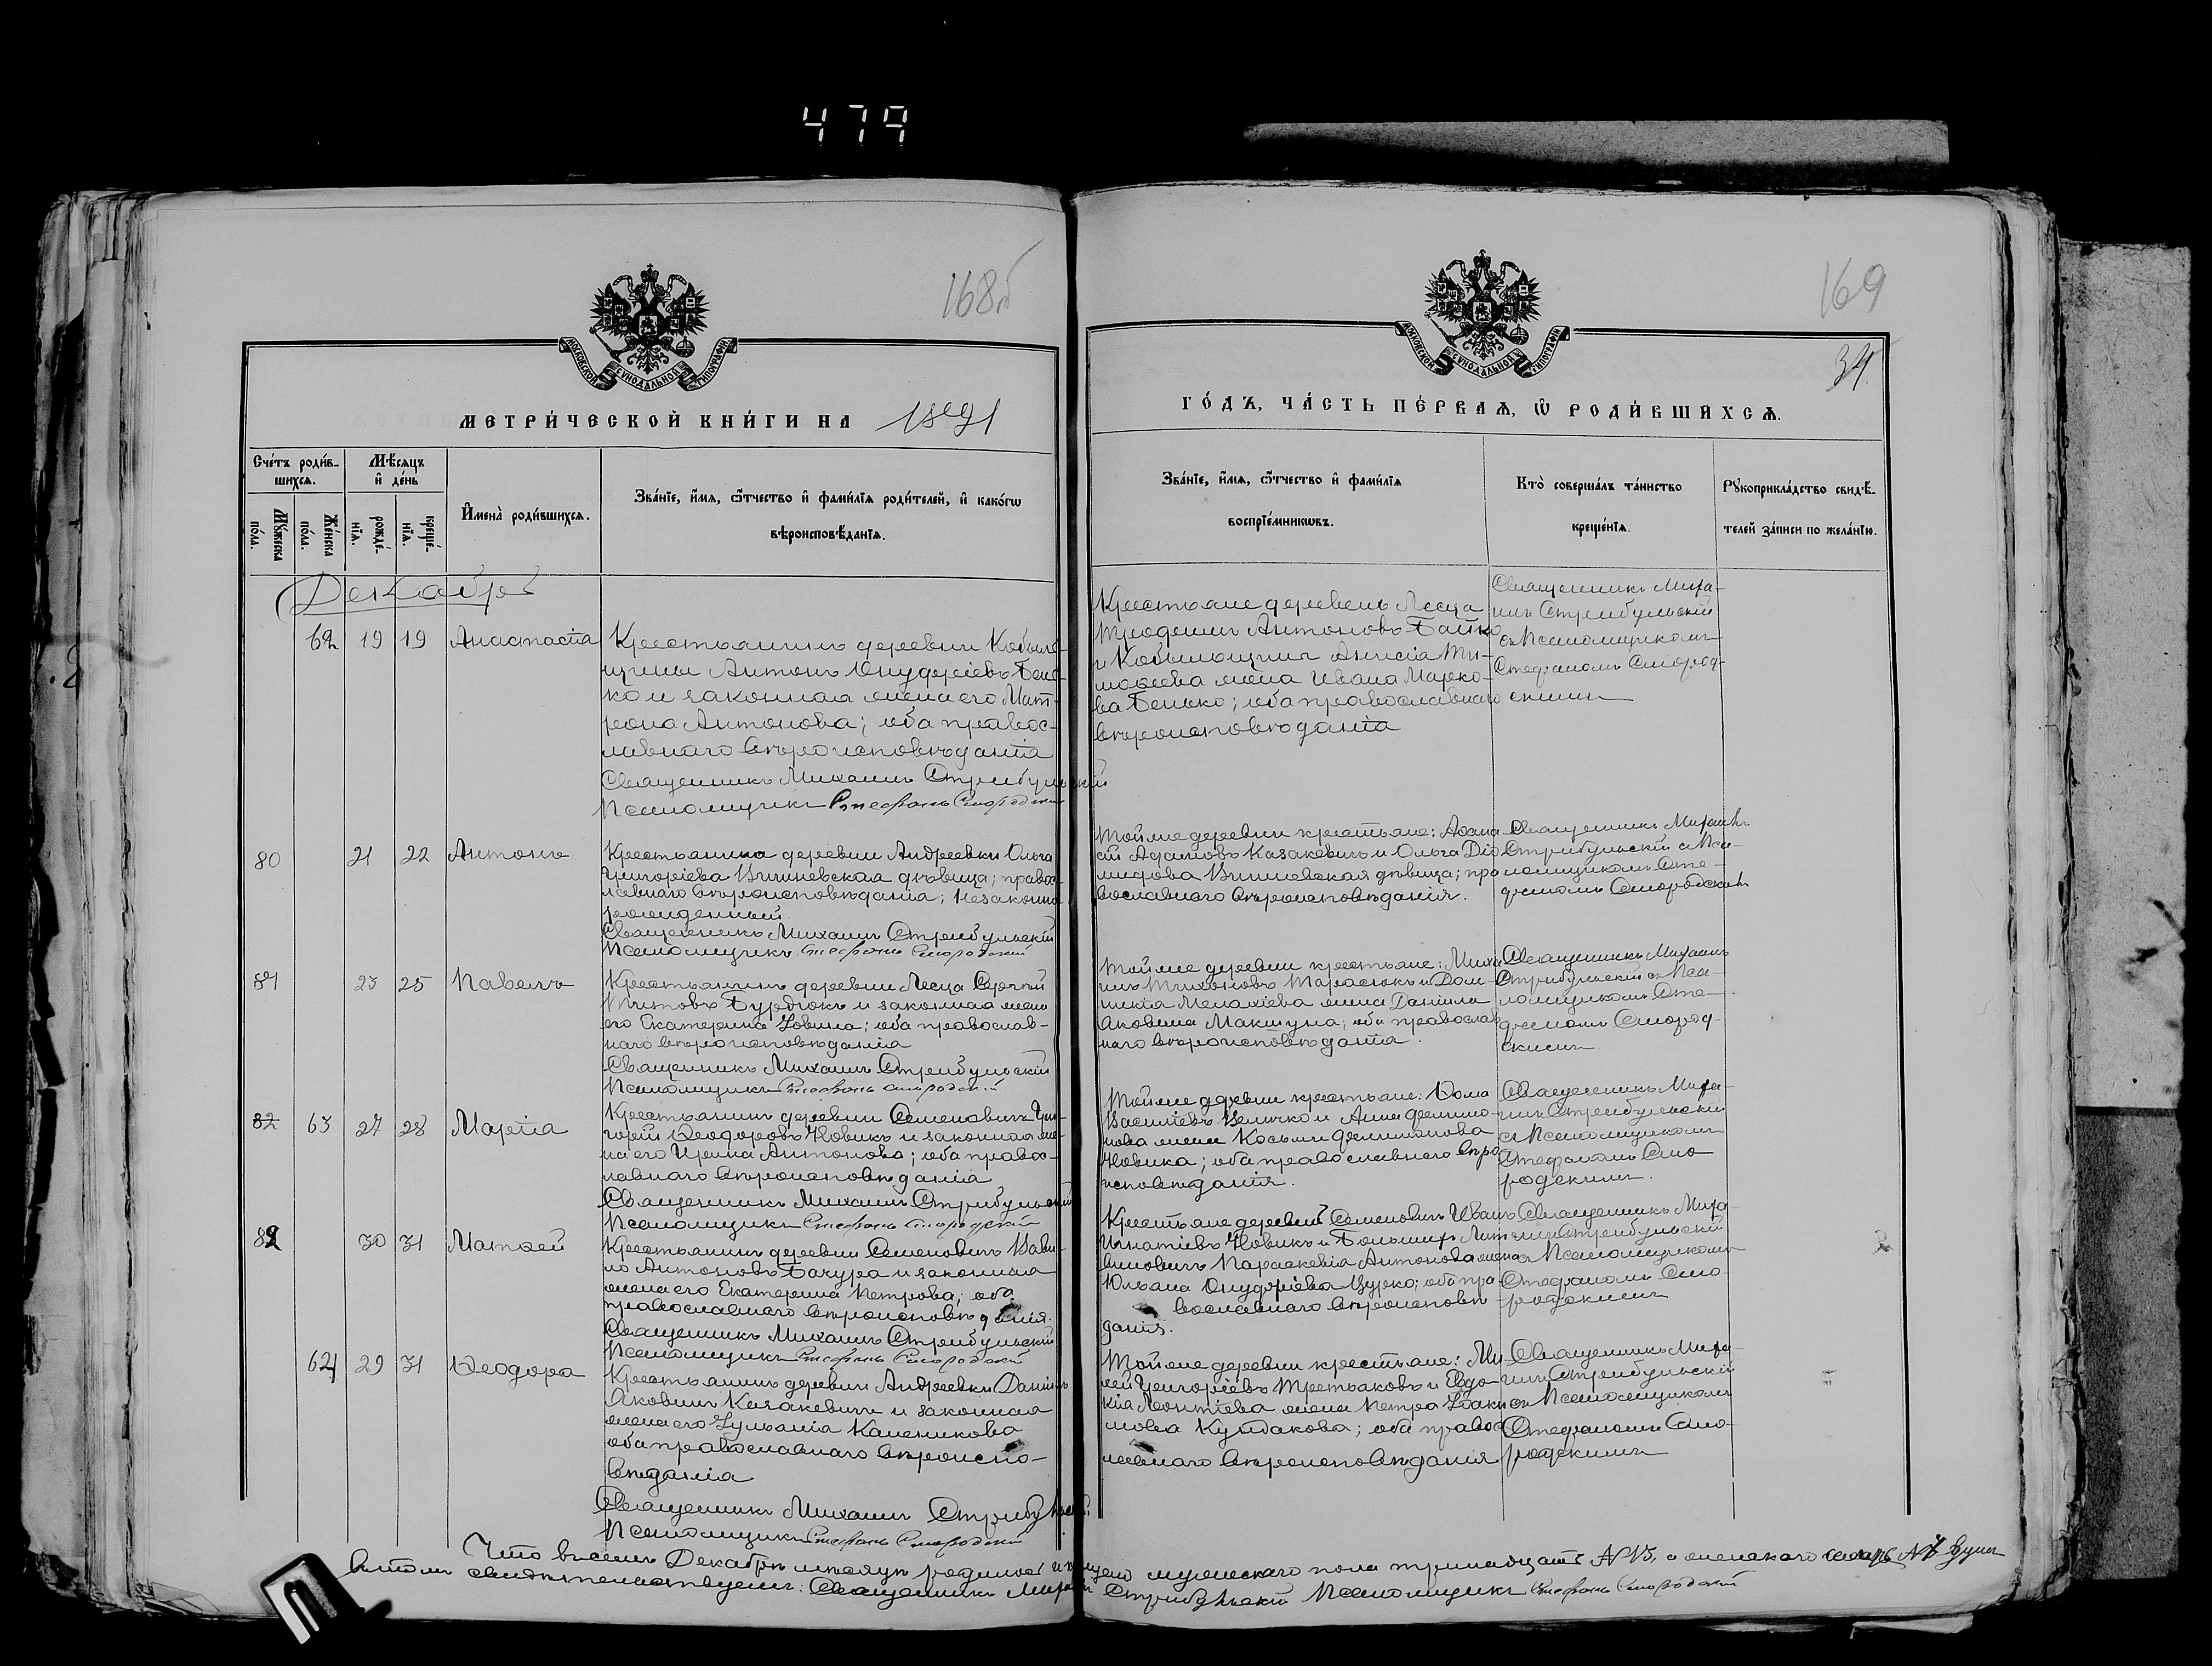 479
168б
169
34
МОСКОВСКОЙ СѴНОДАЛЬНОЙ ТИПОГРАФІИ
МОСКОВСКОЙ СѴНОДАЛЬНОЙ ТИПОГРАФІИ
МЕТРИ́ЧЕСКОЙ КНИ́ГИ НА 1891
ГО́ДЪ, ЧА́СТЬ ПЕ́РВАѦ, Ѽ РОДИ́ВШИХСѦ.
Счетъ роди́в-
шихся.
Мѣ́сяцъ
и҆ де́нь
Му́жеска по́ла.
Же́нска по́ла.
рожде́-
нїя.
креще́-
нїя.
И҆мена̀ роди́вшихся.
Зва́нїе, и҆́мя, ѻ҆́тчество и҆ фами́лїя роди́телей, и҆ како́гѡ
вѣроисповѣ́данїя.
Зва́нїе, и҆́мя, ѻ҆́тчество и҆ фами́лїя
воспрїе́мникѡвъ.
Кто̀ соверша́лъ та́инство
креще́нїя.
Рꙋкоприкла́дство свидѣ́-
телей за́писи по жела́нїю.
Декабрь
62 19 19 Анастасія
Крестьянинъ деревни Кобыло-
щины Антонъ Онуферіевъ Бень-
ко и законная жена его Мат-
рона Антонова; оба правос-
лавнаго вѣроисповѣданія
Священникъ Михаилъ Стрибульскій
Псаломщикъ Стефанъ Смородскій
Крестьяне деревень Лесца
Антоновъ Байко
и Кобыльщины Анисія Ти-
моѳеева жена Ивана Марко-
ва Бенько; оба православнаго
вѣроисповѣданія
Священникъ Миха-
илъ Стрибульскій
съ Псаломщикомъ
Стефаномъ Смород-
скимъ
80 21 22 Антонъ
Крестьянка деревни Андреевки Ольга
Григоріева Вишневская дѣвица; правос-
лавнаго вѣроисповѣданія; незаконно
рожденный
Священникъ Михаилъ Стрибульскій
Псаломщикъ Стефанъ Смородскій
Тойже деревни крестьяне: Аѳана-
сій Адамовъ Казакевичъ и Ольга Діо-
мидова Вишневская дѣвица; пра-
вославнаго вѣроисповѣданія.
Священникъ Михаилъ
Стрибульскій съ Пса-
ломщикомъ Сте-
фаномъ Смородскимъ
81 23 25 Павелъ
Крестьянинъ деревни Лесца Сергѣй
Титовъ Бурдюкъ и законная жена
его Екатерина Іовина; оба православ-
наго вѣроисповѣданія
Священникъ Михаилъ Стрибульскій
Псаломщикъ Стефанъ Смородскій
Тойже деревни крестьяне: Миха-
илъ Тихоновъ Тарасюкъ и Дом-
никія Малахіева жена Даніила
Яковлева Макшуна; оба православ-
наго вѣроисповѣданія.
Священникъ Михаилъ
Стрибульскій съ Пса-
ломщикомъ Сте-
фаномъ Смород-
скимъ
82 63 27 28 Марія
Крестьянинъ деревни Семеновичъ Гри-
горій Ѳеодоровъ Новикъ и законная же-
на его Ирина Антонова; оба правос-
лавнаго вѣроисповѣданія
Священникъ Михаилъ Стрибульскій
Псаломщикъ Стефанъ Смородскій
Тойже деревни крестьяне: Ѳома
Васильевъ Величко и Анна Филимо-
нова жена Косьмы Филимонова
Новика; оба православнаго вѣро-
исповѣданія.
Священникъ Миха-
илъ Стрибульскій
съ Псаломщикомъ
Стефаномъ Смо-
родскимъ.
82 30 31 Матѳей
Крестьянинъ деревни Семеновичъ Вави-
ло Антоновъ Бачура и законная
жена его Екатерина Петрова; оба
православнаго вѣроисповѣданія.
Священникъ Михаилъ Стрибульскій
Псаломщикъ Стефанъ Смородскій
Крестьяне деревень Семеновичъ Иванъ
Игнатіевъ Новикъ и Большихъ Лит-
виновичъ Параскевія Антонова жена
Юльяна Онуфріева Цурко; оба пра-
вославнаго вѣроисповѣ-
данія.
Священникъ Миха-
илъ Стрибульскій
съ Псаломщикомъ
Стефаномъ Смо-
родскимъ
64 29 31 Ѳеодора
Крестьянинъ деревни Андреевки Даніилъ
Яковлевъ Казакевичъ и законная
жена его Іуліанія Каленикова
оба православнаго вѣроиспо-
вѣданія
Священникъ Михаилъ Стрибульскій
Псаломщикъ Стефанъ Смородскій
Тойже деревни крестьяне: Ми-
Григоріевъ Третьяковъ и Евдо-
кія Леонтіева жена Петра Іоаки-
мова Кулдакова; оба правос-
лавнаго вѣроисповѣданія
Священникъ Миха-
илъ Стрибульскій
съ Псаломщикомъ
Стефаномъ Смо-
родскимъ
Что въ семъ Декабрѣ мѣсяцѣ родилось и крещено мужескаго пола тринадцать № 13, а женскаго семь № 7 душъ
въ томъ свидѣтельствуемъ: Священникъ Михаилъ Стрибульскій Псаломщикъ Стефанъ Смородскій